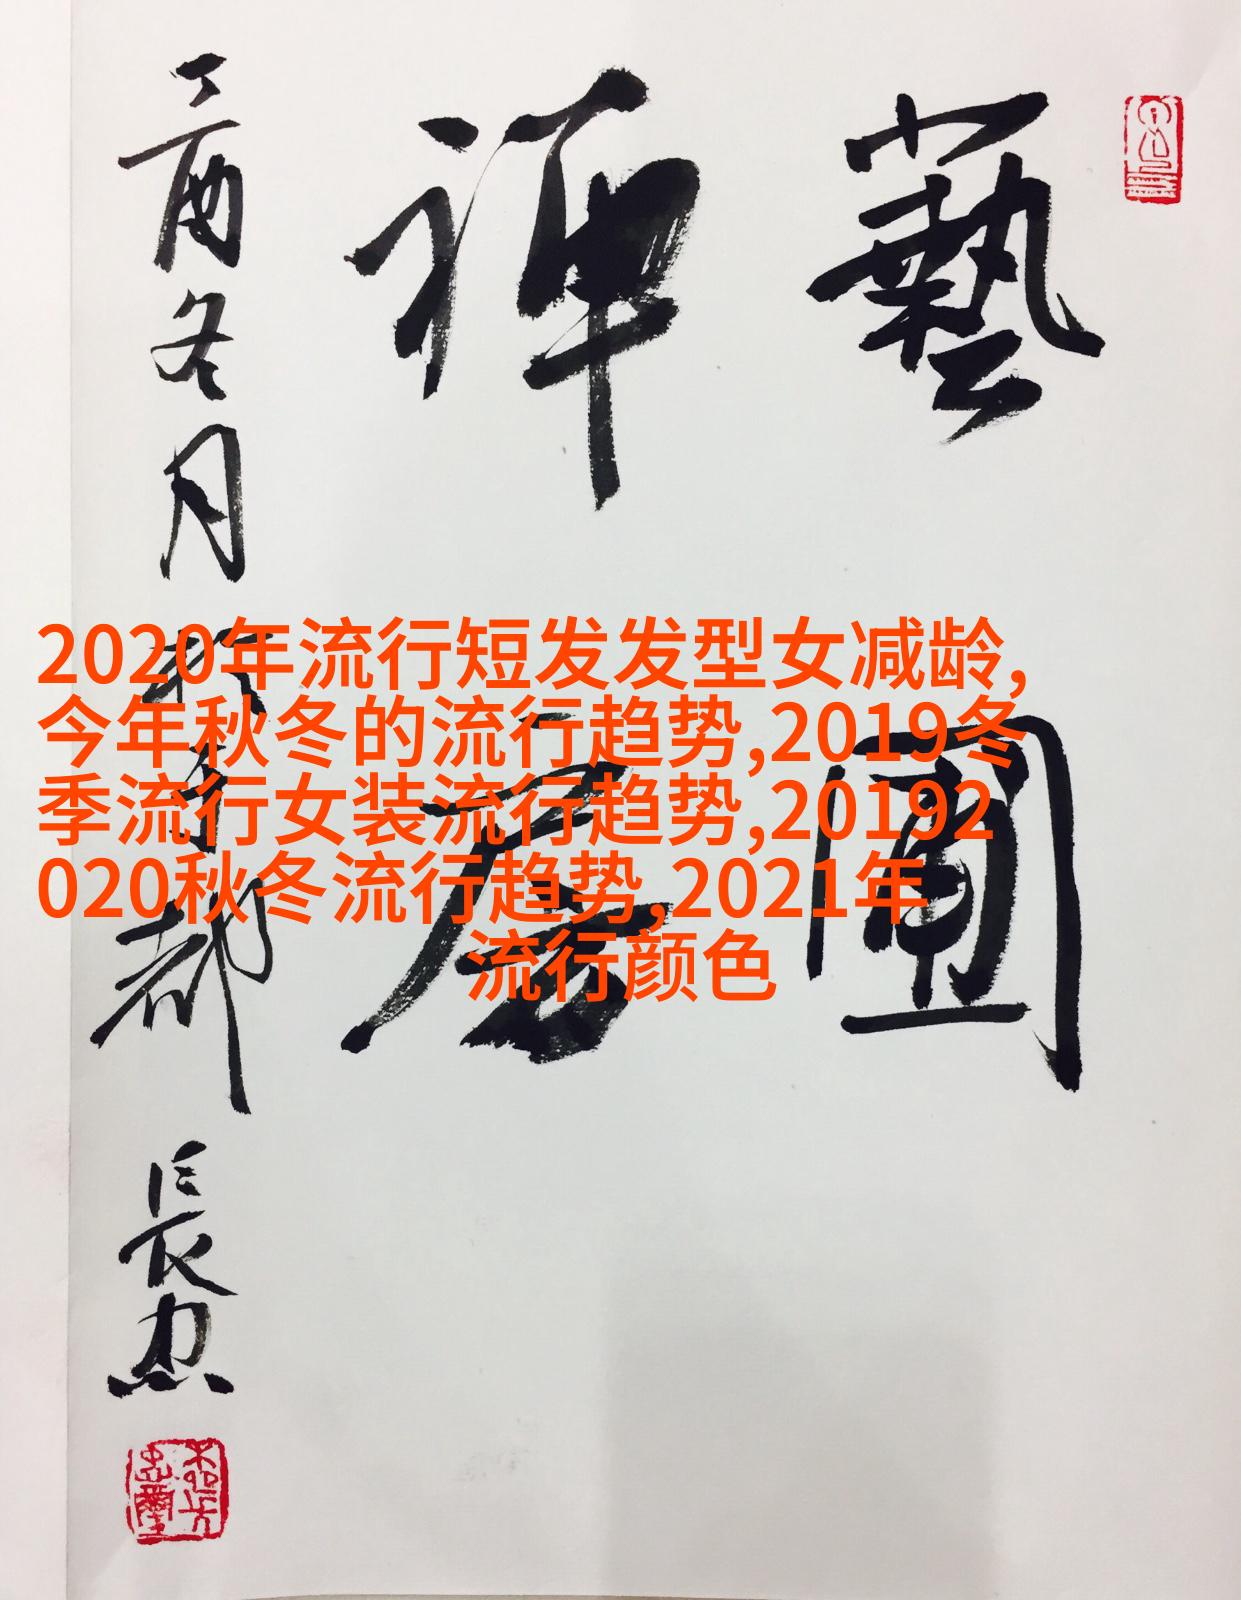 藝圃
禪居
丁酉冬月於京都
長忠
2020年流行短发发型女减龄,
今年秋冬的流行趋势,2019冬
季流行女装流行趋势,20192
020秋冬流行趋势,2021年
流行颜色